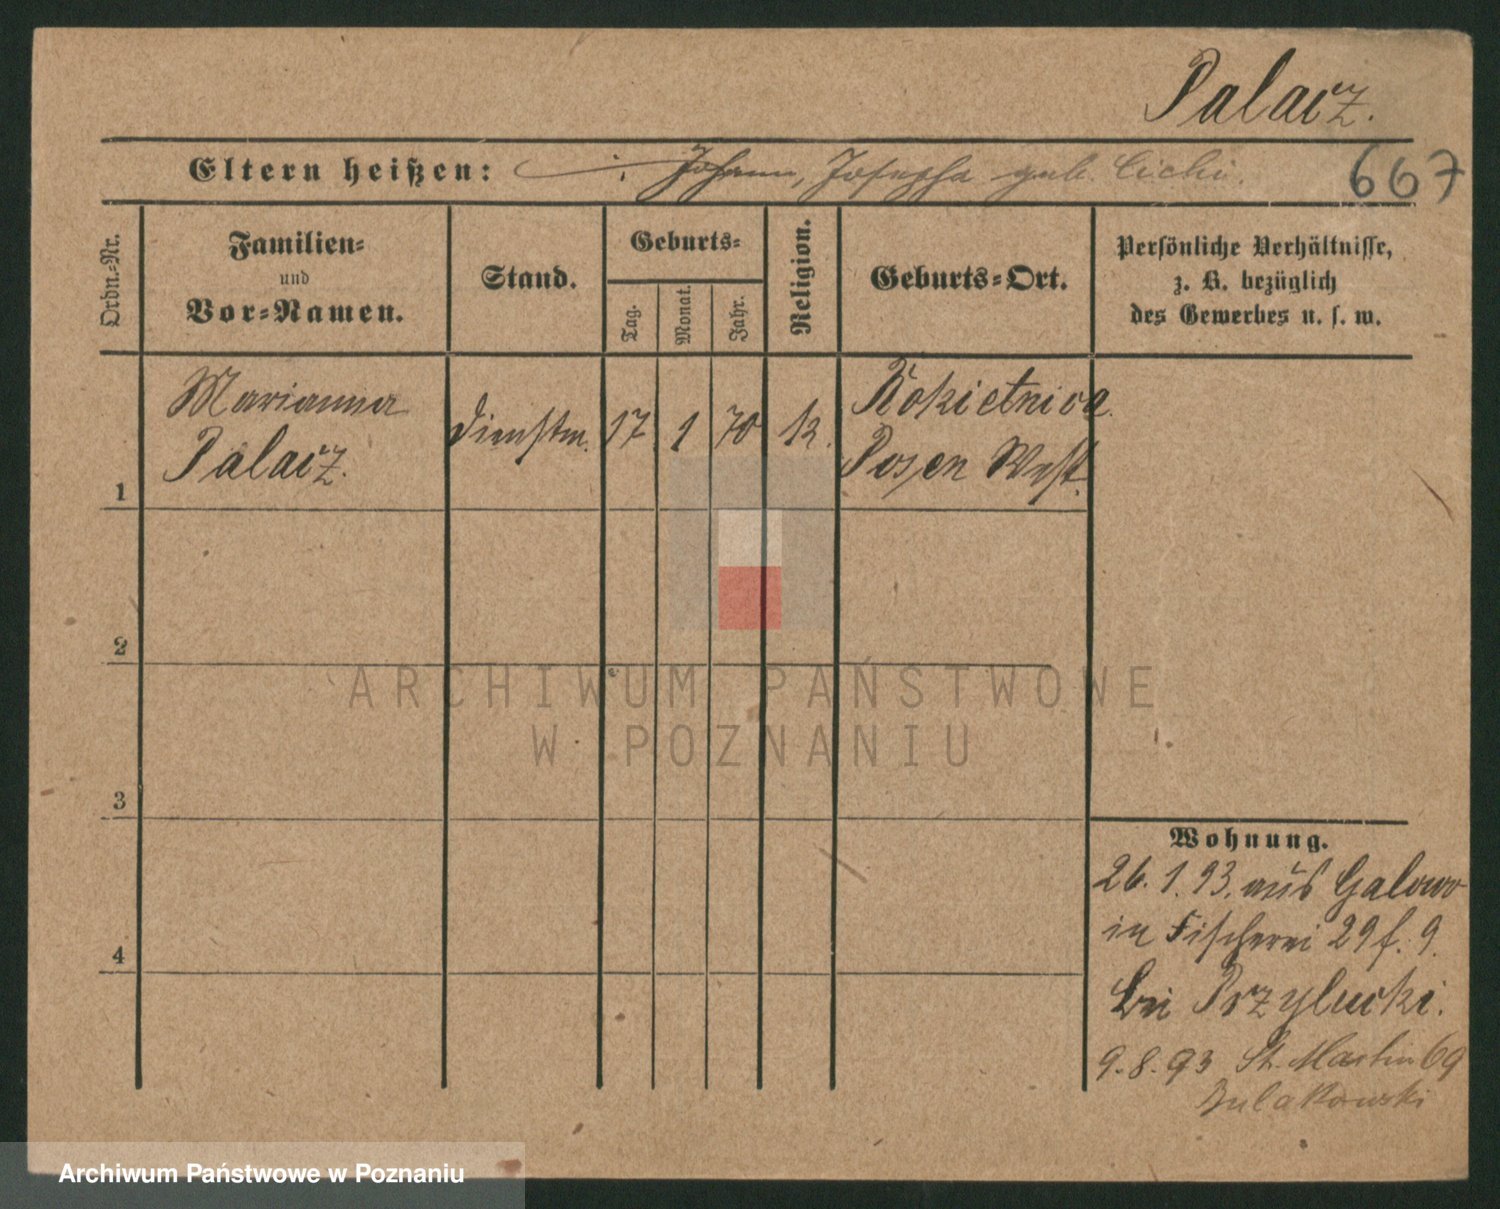 Palacz.
Eltern heißen: Johann, Josepha geb. Cicha.
667
Ordn.=Nr.
Familien=
und
Vor=Namen.
Stand.
Geburts=
Tag.
Monat.
Jahr.
Religion.
Geburts=Ort.
Persönliche Verhältnisse,
z. B. bezüglich
des Gewerbes u. s. w.
Marianna
Palacz.
Dienstm. 17 1 70 k.
Rokietnica
Posen West.
1
2
3
4
Wohnung.
26. 1. 93. aus Galowo
in Fischerei 29 f. 9.
bei Przylucki.
9. 8. 93 St. Martin 69
Bulakowski
ARCHIWUM PAŃSTWOWE
W POZNANIU
Archiwum Państwowe w Poznaniu